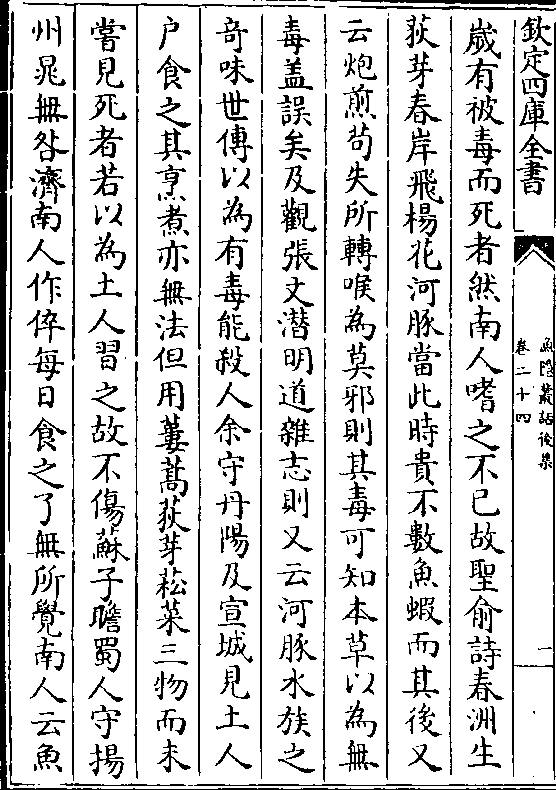 欽定四庫全書
漁隱叢話後集
卷二十四
一
歲有被毒而死者然南人嗜之不已故聖俞詩春洲生
荻芽春岸飛楊花河豚當此時貴不數魚蝦而其後又
云炮煎茍失所轉喉為莫邪則其毒可知本草以為無
毒盖誤矣及觀張文潛明道雜志則又云河豚水族之
竒味世傳以為有毒能殺人余守丹陽及宣城見土人
户食之其烹煮亦無法但用蔞蒿荻芽菘菜三物而未
嘗見死者若以為土人習之故不傷蘇子瞻蜀人守揚
州晁無咎濟南人作倅每日食之了無所覺南人云魚